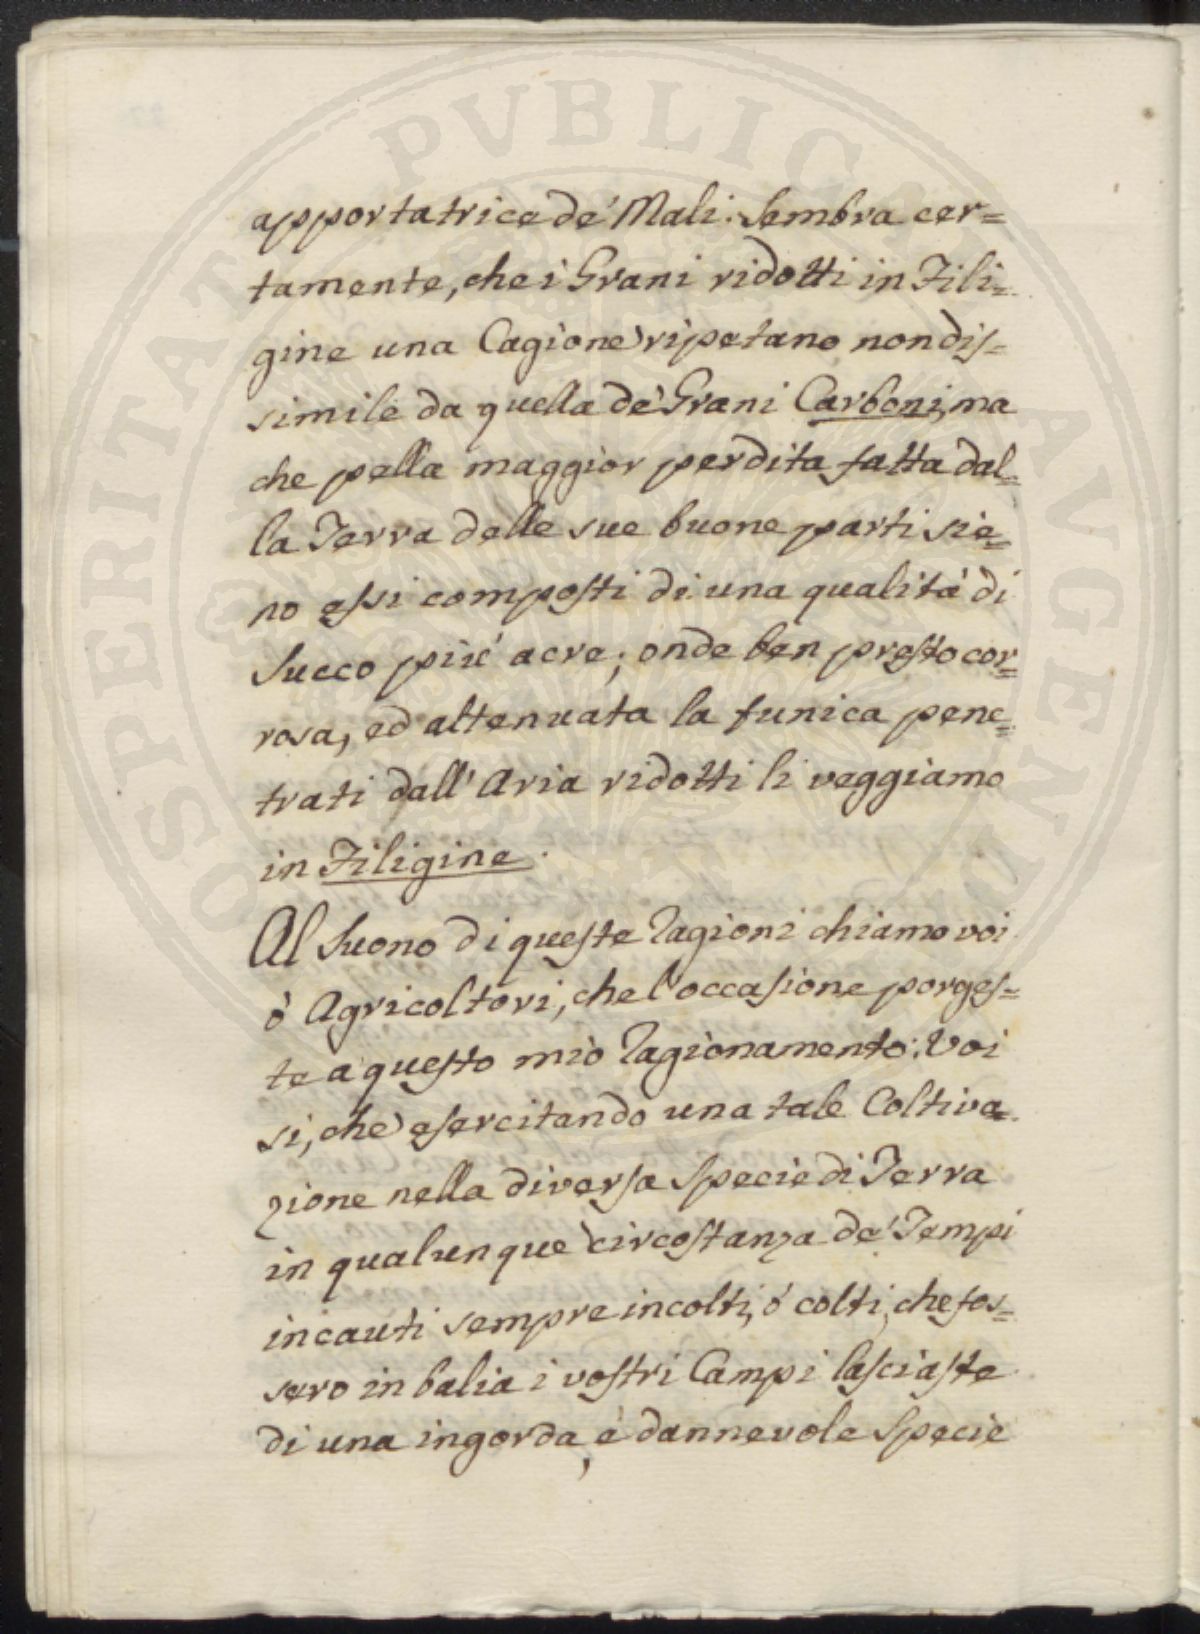 PVBLICAE
PROSPERITATI
AVGENDAE
apportatrice de' Mali. Sembra cer=
tamente, che i Grani ridotti in Fili=
gine una Cagione ripetano non dis=
simile da quella de' Grani Carboni, ma
che pella maggior perdita fatta dal=
la Terra delle sue buone parti sie=
no essi composti di una qualità di
Succo più acre; onde ben presto cor=
rosa, ed attenuata la tunica pene=
trati dall'Aria ridotti li veggiamo
in Filigine.
Al Suono di queste Ragioni chiamo voi
ò Agricoltori, che l'occasione porges=
te a questo mio Ragionamento: Voi
si, che esercitando una tale Coltiva=
zione nella diversa Specie di Terra
in qualunque circostanza de' Tempi
incauti sempre incolti, ò colti, che fos=
sero in balia i vostri Campi lasciaste
di una ingorda, e dannevole Specie